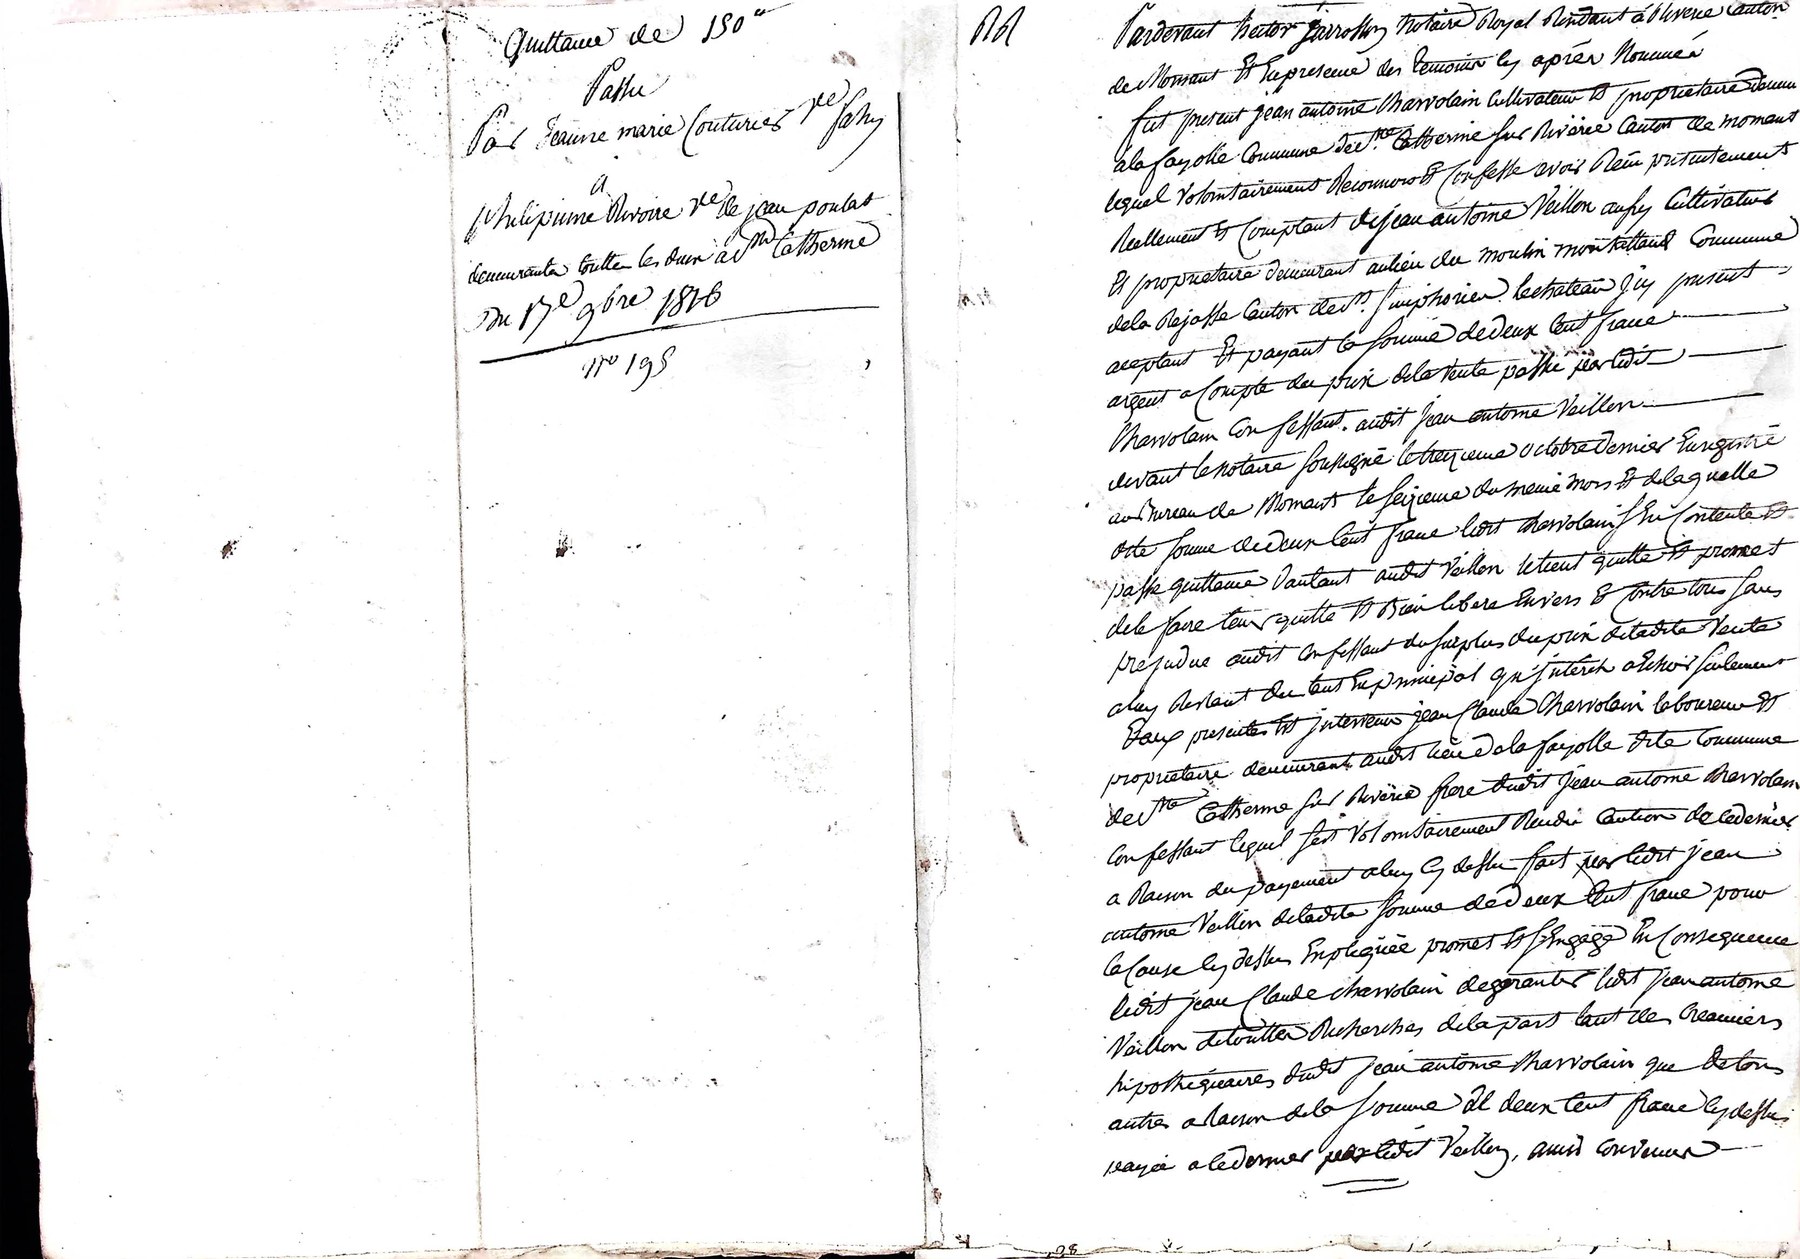 Quittance de 150"
Passée
Par Jeanne marie Couturier ve fahy
a
philipinne Rivoire ve de jean poulat
demeurantes touttes les deux a Ste Catherine
Du 17e 9bre 1816
No 195
Pardevant hector Jarrosson Notaire Royal Résidant à Riverie Canton
de Mornant Et En presence des temoins cy aprés Nommés
fut present jean antoine Charvolain Cultivateur et proprietaire demeurant
a la fayolle Commune de Ste Catherine sur Rivérie Canton de mornant
lequel Volontairement Reconnois et Confesse avoir Recu presentement
Reellement et Comptant de jean antoine Veillon aussy Cultivateur
Et proprietaire demeurant au lieu du moulin Commune
de la Rajasse Canton de St Simphorien le chateau jcy present
aceptant Et payant la somme de deux Cent franc
argent a Compte du prix de la Vente passée par ledit
Charvolain Confessant audit jean antoine Veillon
devant le Notaire soussigné le treizieme octobre Dernier Enregistré
au Bureau de Mornant le seizieme du meme mois Et de laquelle
dite somme de deux Cent franc ledit Charvolain s'En Contente et
passe quittance d'autant audit Veillon le tient quitte et promet
de le faire tenir quitte et Bien libere Envers Et Contre tous sans
prejudice audit Confessant du surplus du prix de ladite Vente
a luy Restant du tant En principal qu'jnterets a Echoir seulement
Et aux presentes est jntervenu jean Claude Charvolain laboureur et
proprietaire demeurant audit lieu de la fayolle dite Commune
de Ste Catherine sur Rivérie frere dudit jean antoine Charvolain
Confessant lequel s'est Volontairement Rendu Caution de ce dernier
a Raison du payement a luy cy dessu fait par ledit jean
antoine Veillon de ladite somme de deux Cent franc pour
la Cause cy dessus Expliquée promet et s'Engage En Consequence
ledit jean Claude Charvolain de garantir ledit jean antoine
Veillon de touttes Recherches de la part tant des Creanciers
hipothéquaires dudit jean antoine Charvolain que de tous
autres a Raison de la somme de deux Cent franc cy dessus
payée a ce dernier par ledit Veillon, ainsi Convenu